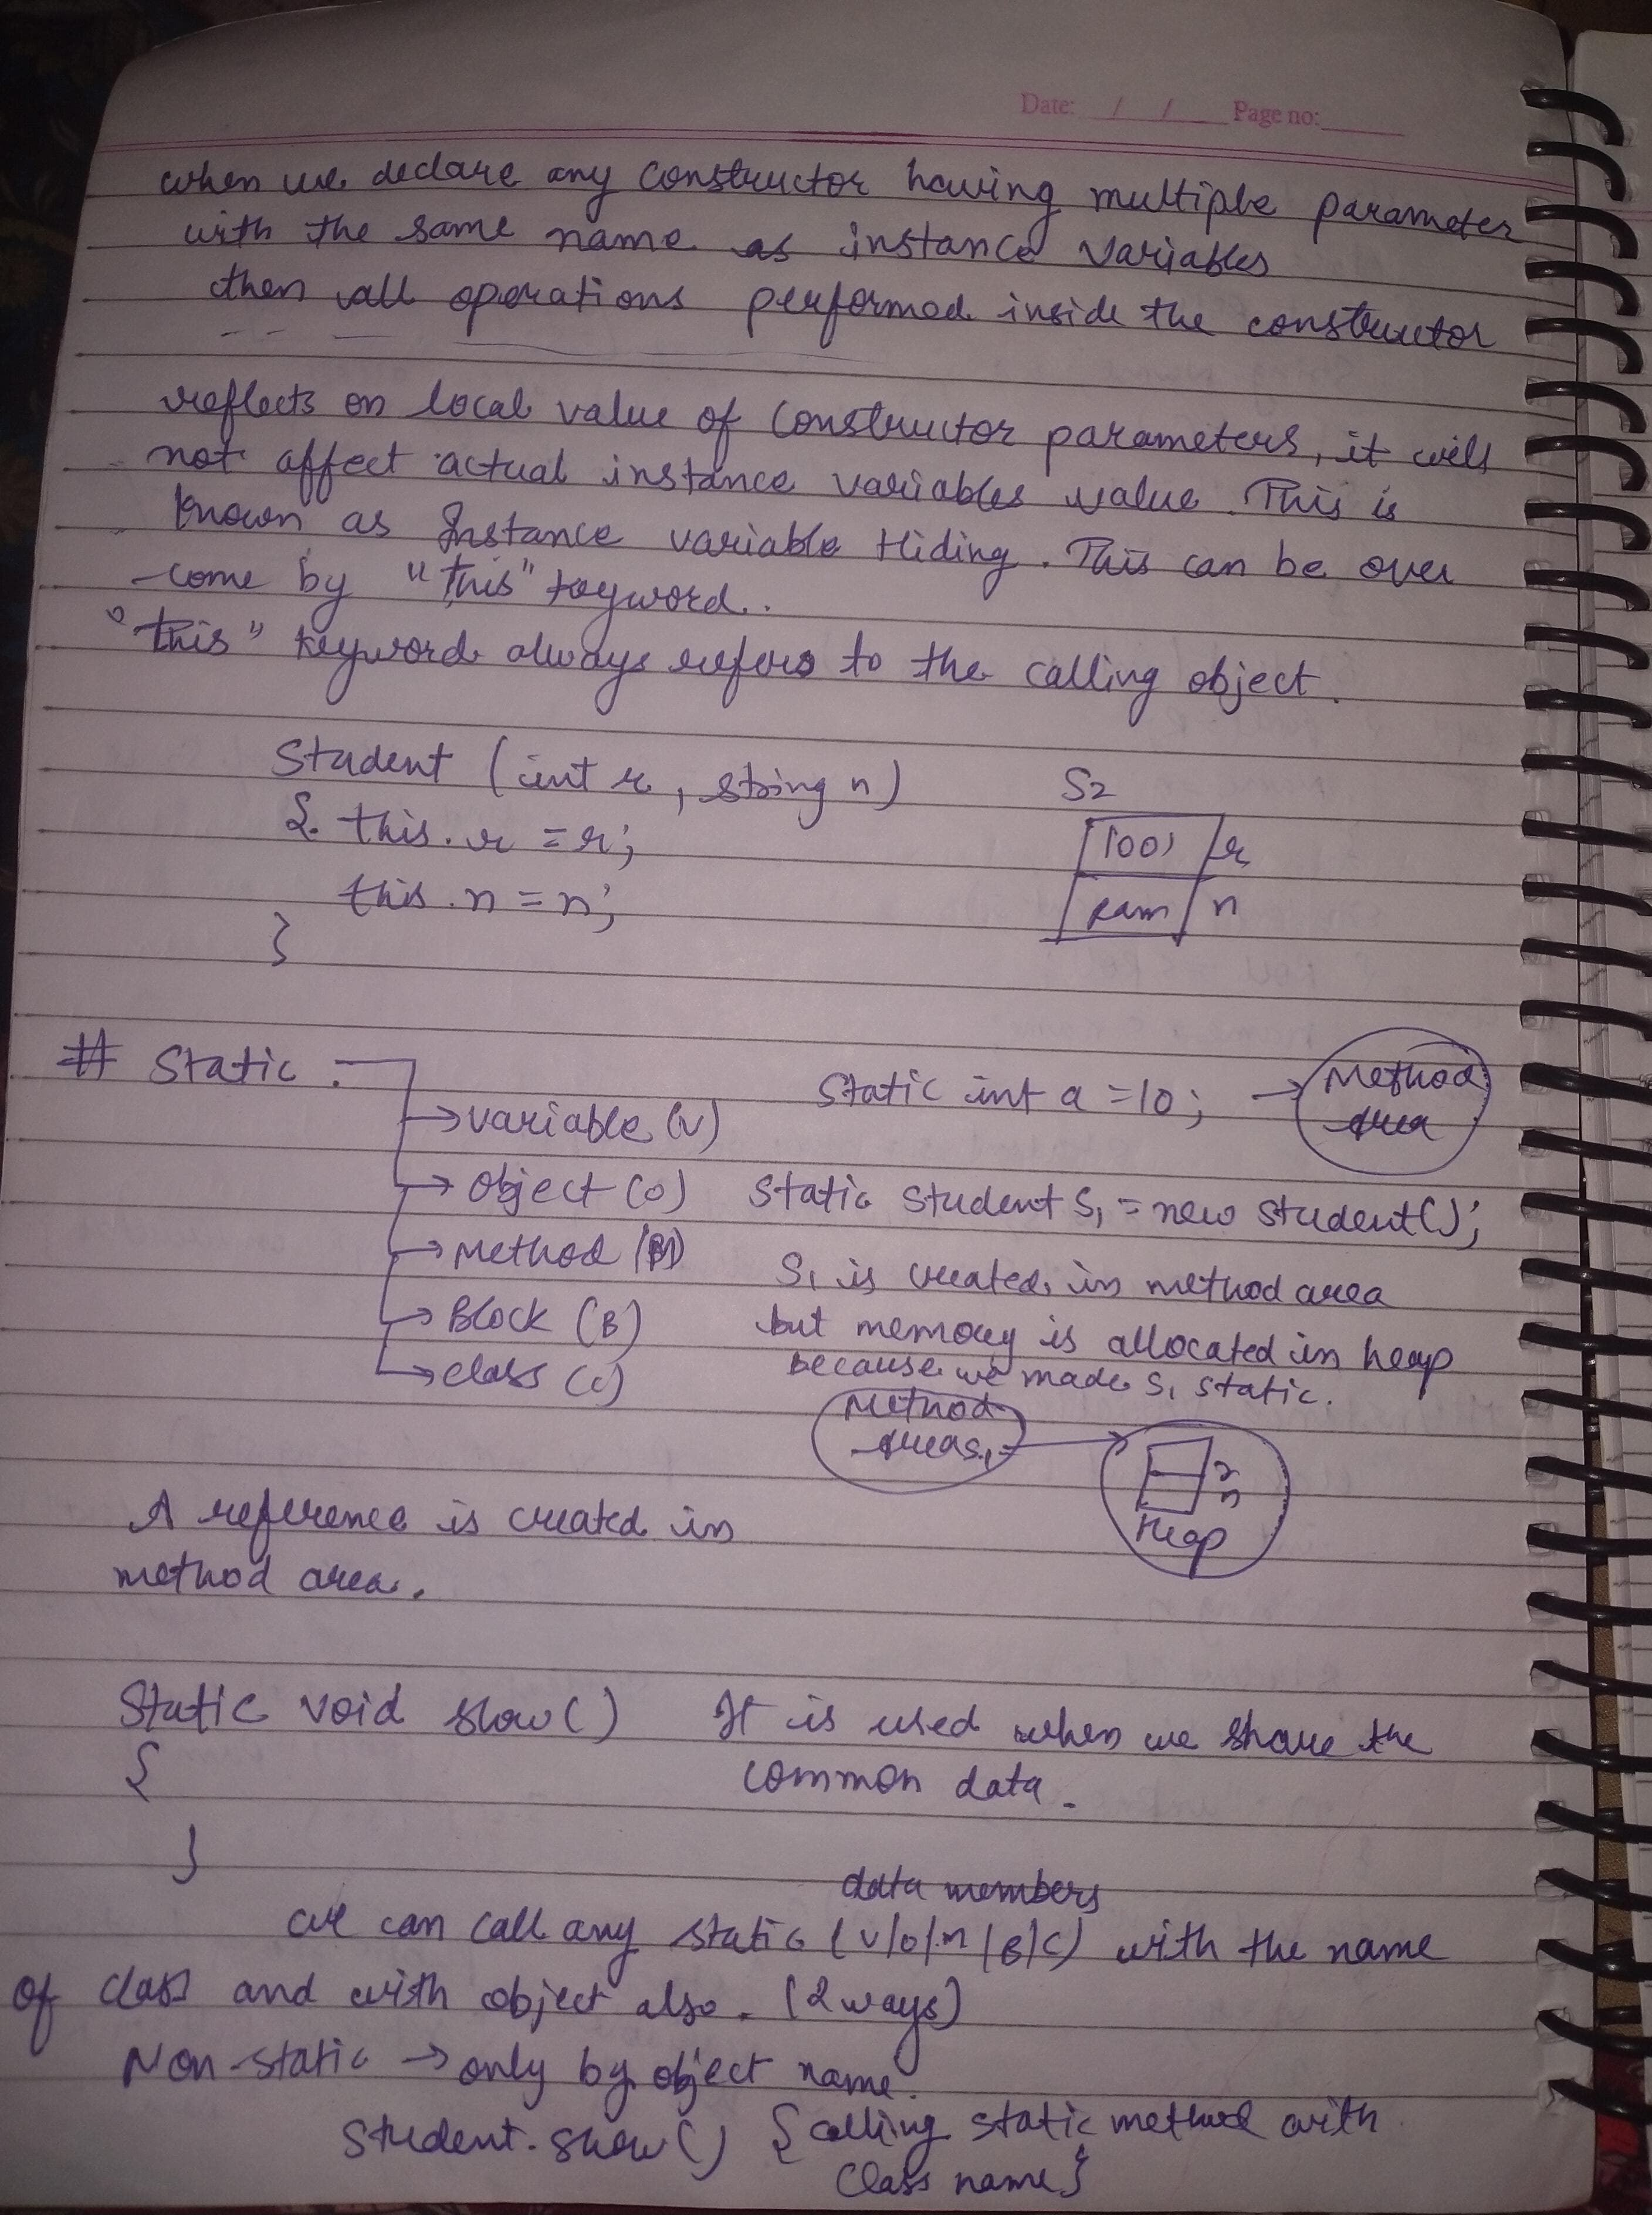 Date: / / Page no:
when we declare any constructor having multiple parameter
with the same name as instance variables
then all operations performed inside the constructor
reflects on local value of constructor parameters, it will
not affect actual instance variables value. This is
known as Instance variable Hiding. This can be over
-come by "this" keyword.
"this" keyword always refers to the calling object.
Student (int r, string n)
{ this.r = r;
this.n = n;
}
S2
1001 r
ram n
# Static :-
→ variable (v)
→ object (o)
→ Method (M)
→ Block (B)
→ class (c)
Static int a = 10; → Method
area
Static Student S1 = new Student();
S1 is created in method area
but memory is allocated in heap
because we made S1 static.
Method
area S1 →
r
n
Heap
A reference is created in
method area.
Static void show()
{
}
It is used when we share the
common data.
data members
we can call any static (v/o/m/B/C) with the name
of class and with object also. (2 ways)
Non-static → only by object name.
Student.show() {calling static method with
class name}